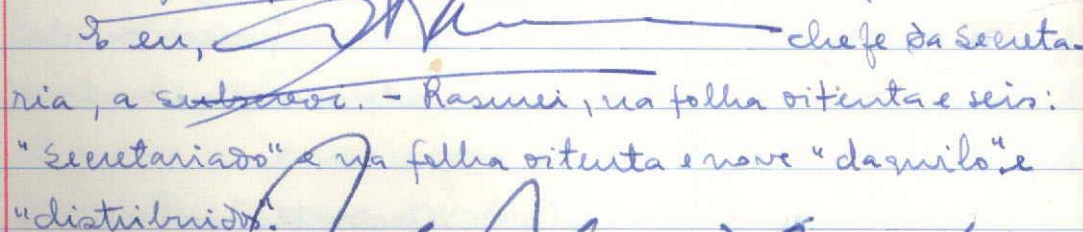 E eu, chefe da Secreta-
ria, a subscrevi. - Rasurei, na folha oitenta e seis:
"Secretariado" e na folha oitenta e nove "daquilo" e
"distribuidos".